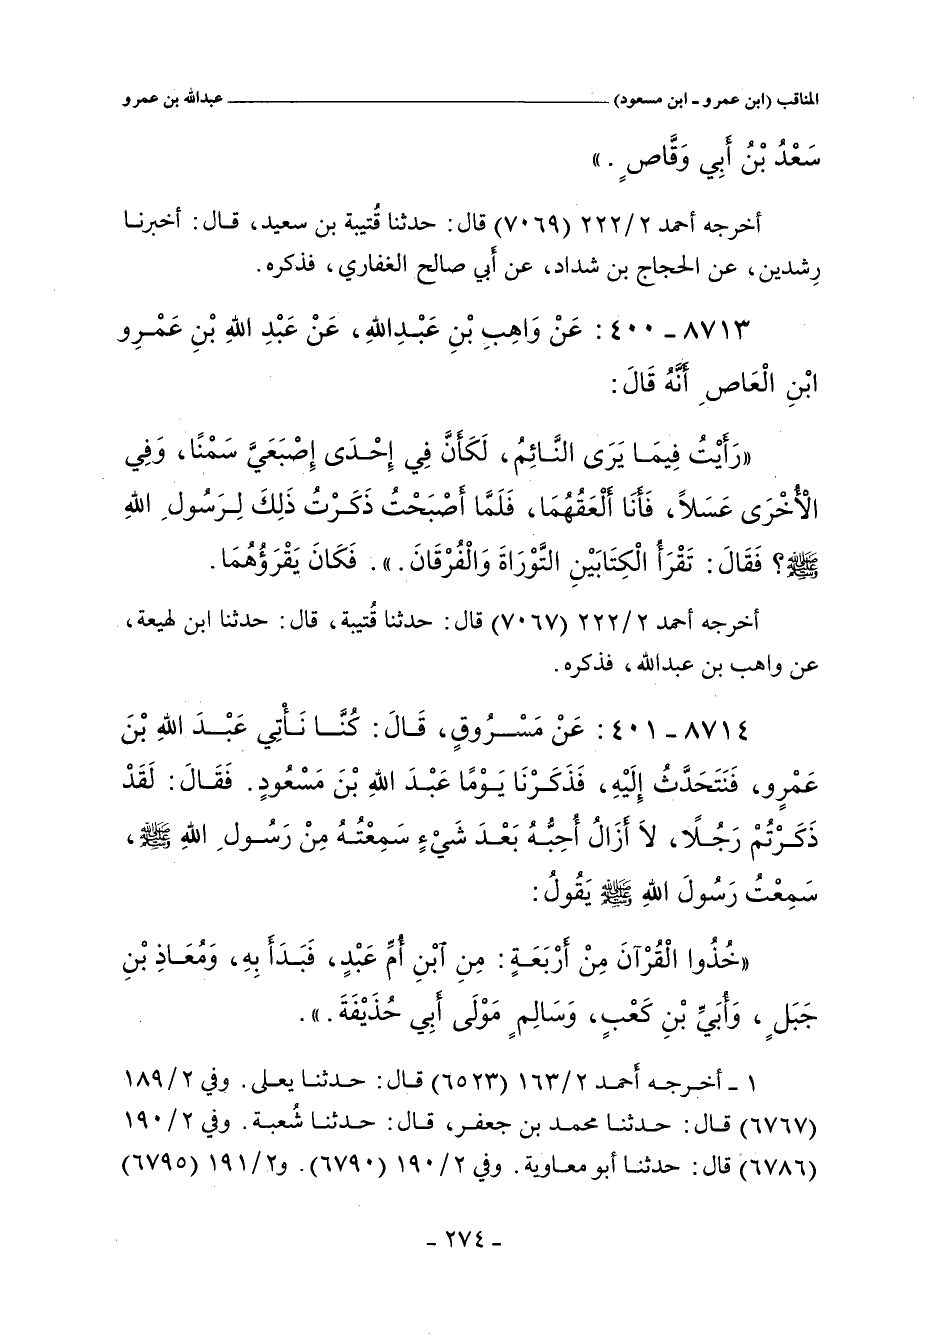 المناقب (ابن عمرو - ابن مسعود) ــــــــــ عبدالله بن عمرو
سَعْدُ بْنُ أَبِي وَقَّاصٍ. »
أخرجه أحمد ٢٢٢/٢ (٧٠٦٩) قال: حدثنا قُتيبة بن سعيد، قال: أخبرنا
رِشدين، عن الحجاج بن شداد، عن أبي صالح الغفاري، فذكره.
٨٧١٣ - ٤٠٠: عَنْ وَاهِبِ بْنِ عَبْدِاللهِ، عَنْ عَبْدِ اللهِ بْنِ عَمْرِو
ابْنِ الْعَاصِ أَنَّهُ قَالَ:
«رَأَيْتُ فِيمَا يَرَى النَّائِمُ، لَكَأَنَّ فِي إِحْدَى إِصْبَعَيَّ سَمْنًا، وَفِي
الْأُخْرَى عَسَلاً، فَأَنَا أَلْعَقُهُمَا، فَلَمَّا أَصْبَحْتُ ذَكَرْتُ ذَلِكَ لِرَسُولِ اللهِ
ﷺ؟ فَقَالَ: تَقْرَأُ الْكِتَابَيْنِ التَّوْرَاةَ وَالْفُرْقَانَ.». فَكَانَ يَقْرَؤُهُمَا.
أخرجه أحمد ٢٢٢/٢ (٧٠٦٧) قال: حدثنا قُتيبة، قال: حدثنا ابن لهيعة،
عن واهب بن عبدالله، فذكره.
٨٧١٤ - ٤٠١: عَنْ مَسْرُوقٍ، قَالَ: كُنَّا نَأْتِي عَبْدَ اللهِ بْنَ
عَمْرٍو، فَنَتَحَدَّثُ إِلَيْهِ، فَذَكَرْنَا يَوْمًا عَبْدَ اللهِ بْنَ مَسْعُودٍ. فَقَالَ: لَقَدْ
ذَكَرْتُمْ رَجُلًا، لاَ أَزَالُ أُحِبُّهُ بَعْدَ شَيْءٍ سَمِعْتُهُ مِنْ رَسُولِ اللهِ ﷺ،
سَمِعْتُ رَسُولَ اللهِ ﷺ يَقُولُ:
«خُذُوا الْقُرْآنَ مِنْ أَرْبَعَةٍ: مِنِ ٱبْنِ أُمِّ عَبْدٍ، فَبَدَأَ بِهِ، وَمُعَاذِ بْنِ
جَبَلٍ، وَأُبَيِّ بْنِ كَعْبٍ، وَسَالِمٍ مَوْلَى أَبِي حُذَيْفَةَ.».
١ - أخرجه أحمد ١٦٣/٢ (٦٥٢٣) قال: حدثنا يعلى. وفي ١٨٩/٢
(٦٧٦٧) قال: حدثنا محمد بن جعفر، قال: حدثنا شُعبة. وفي ١٩٠/٢
(٦٧٨٦) قال: حدثنا أبو معاوية. وفي ١٩٠/٢ (٦٧٩٠). و١٩١/٢ (٦٧٩٥)
- ٢٧٤ -